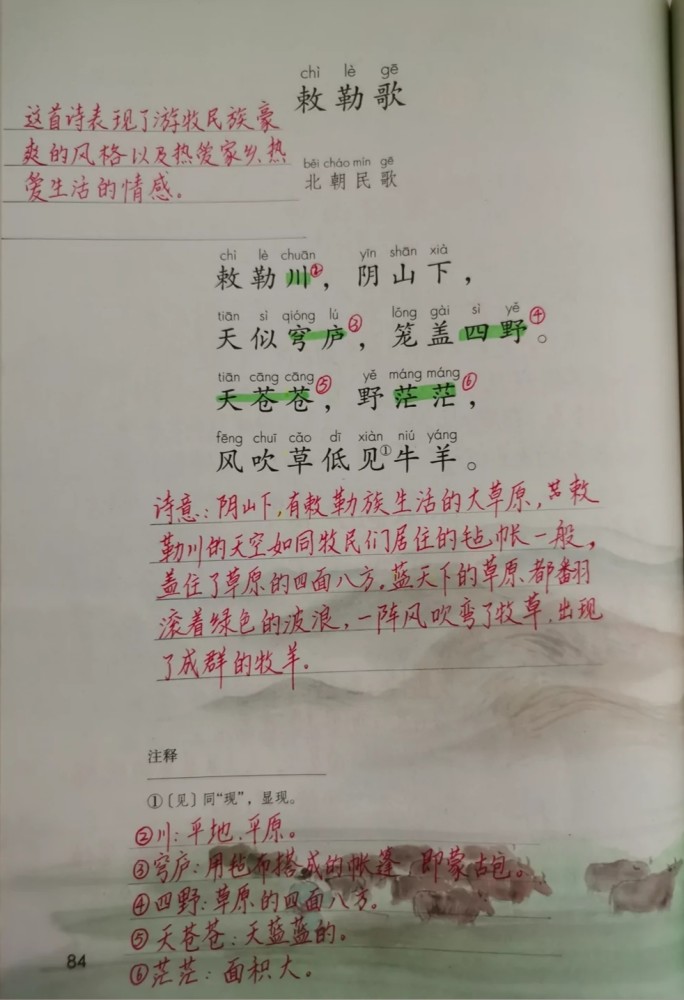 chì lè gē
敕勒歌
这首诗表现了游牧民族豪
爽的风格以及热爱家乡、热
爱生活的情感。
běi cháo mín gē
北朝民歌
chì lè chuān yīn shān xià
敕勒川②，阴山下，
tiān sì qióng lú lǒng gài sì yě
天似穹庐③，笼盖四野④。
tiān cāng cāng yě máng máng
天苍苍⑤，野茫茫⑥，
fēng chuī cǎo dī xiàn niú yáng
风吹草低见①牛羊。
诗意：阴山下，有敕勒族生活的大草原，敕
勒川的天空如同牧民们居住的毡帐一般，
盖住了草原的四面八方。蓝天下的草原都翻
滚着绿色的波浪，一阵风吹弯了牧草，出现
了成群的牧羊。
注释
①〔见〕同“现”，显现。
②川：平地、平原。
③穹庐：用毡布搭成的帐篷，即蒙古包。
④四野：草原的四面八方。
⑤天苍苍：天蓝蓝的。
⑥茫茫：面积大。
84